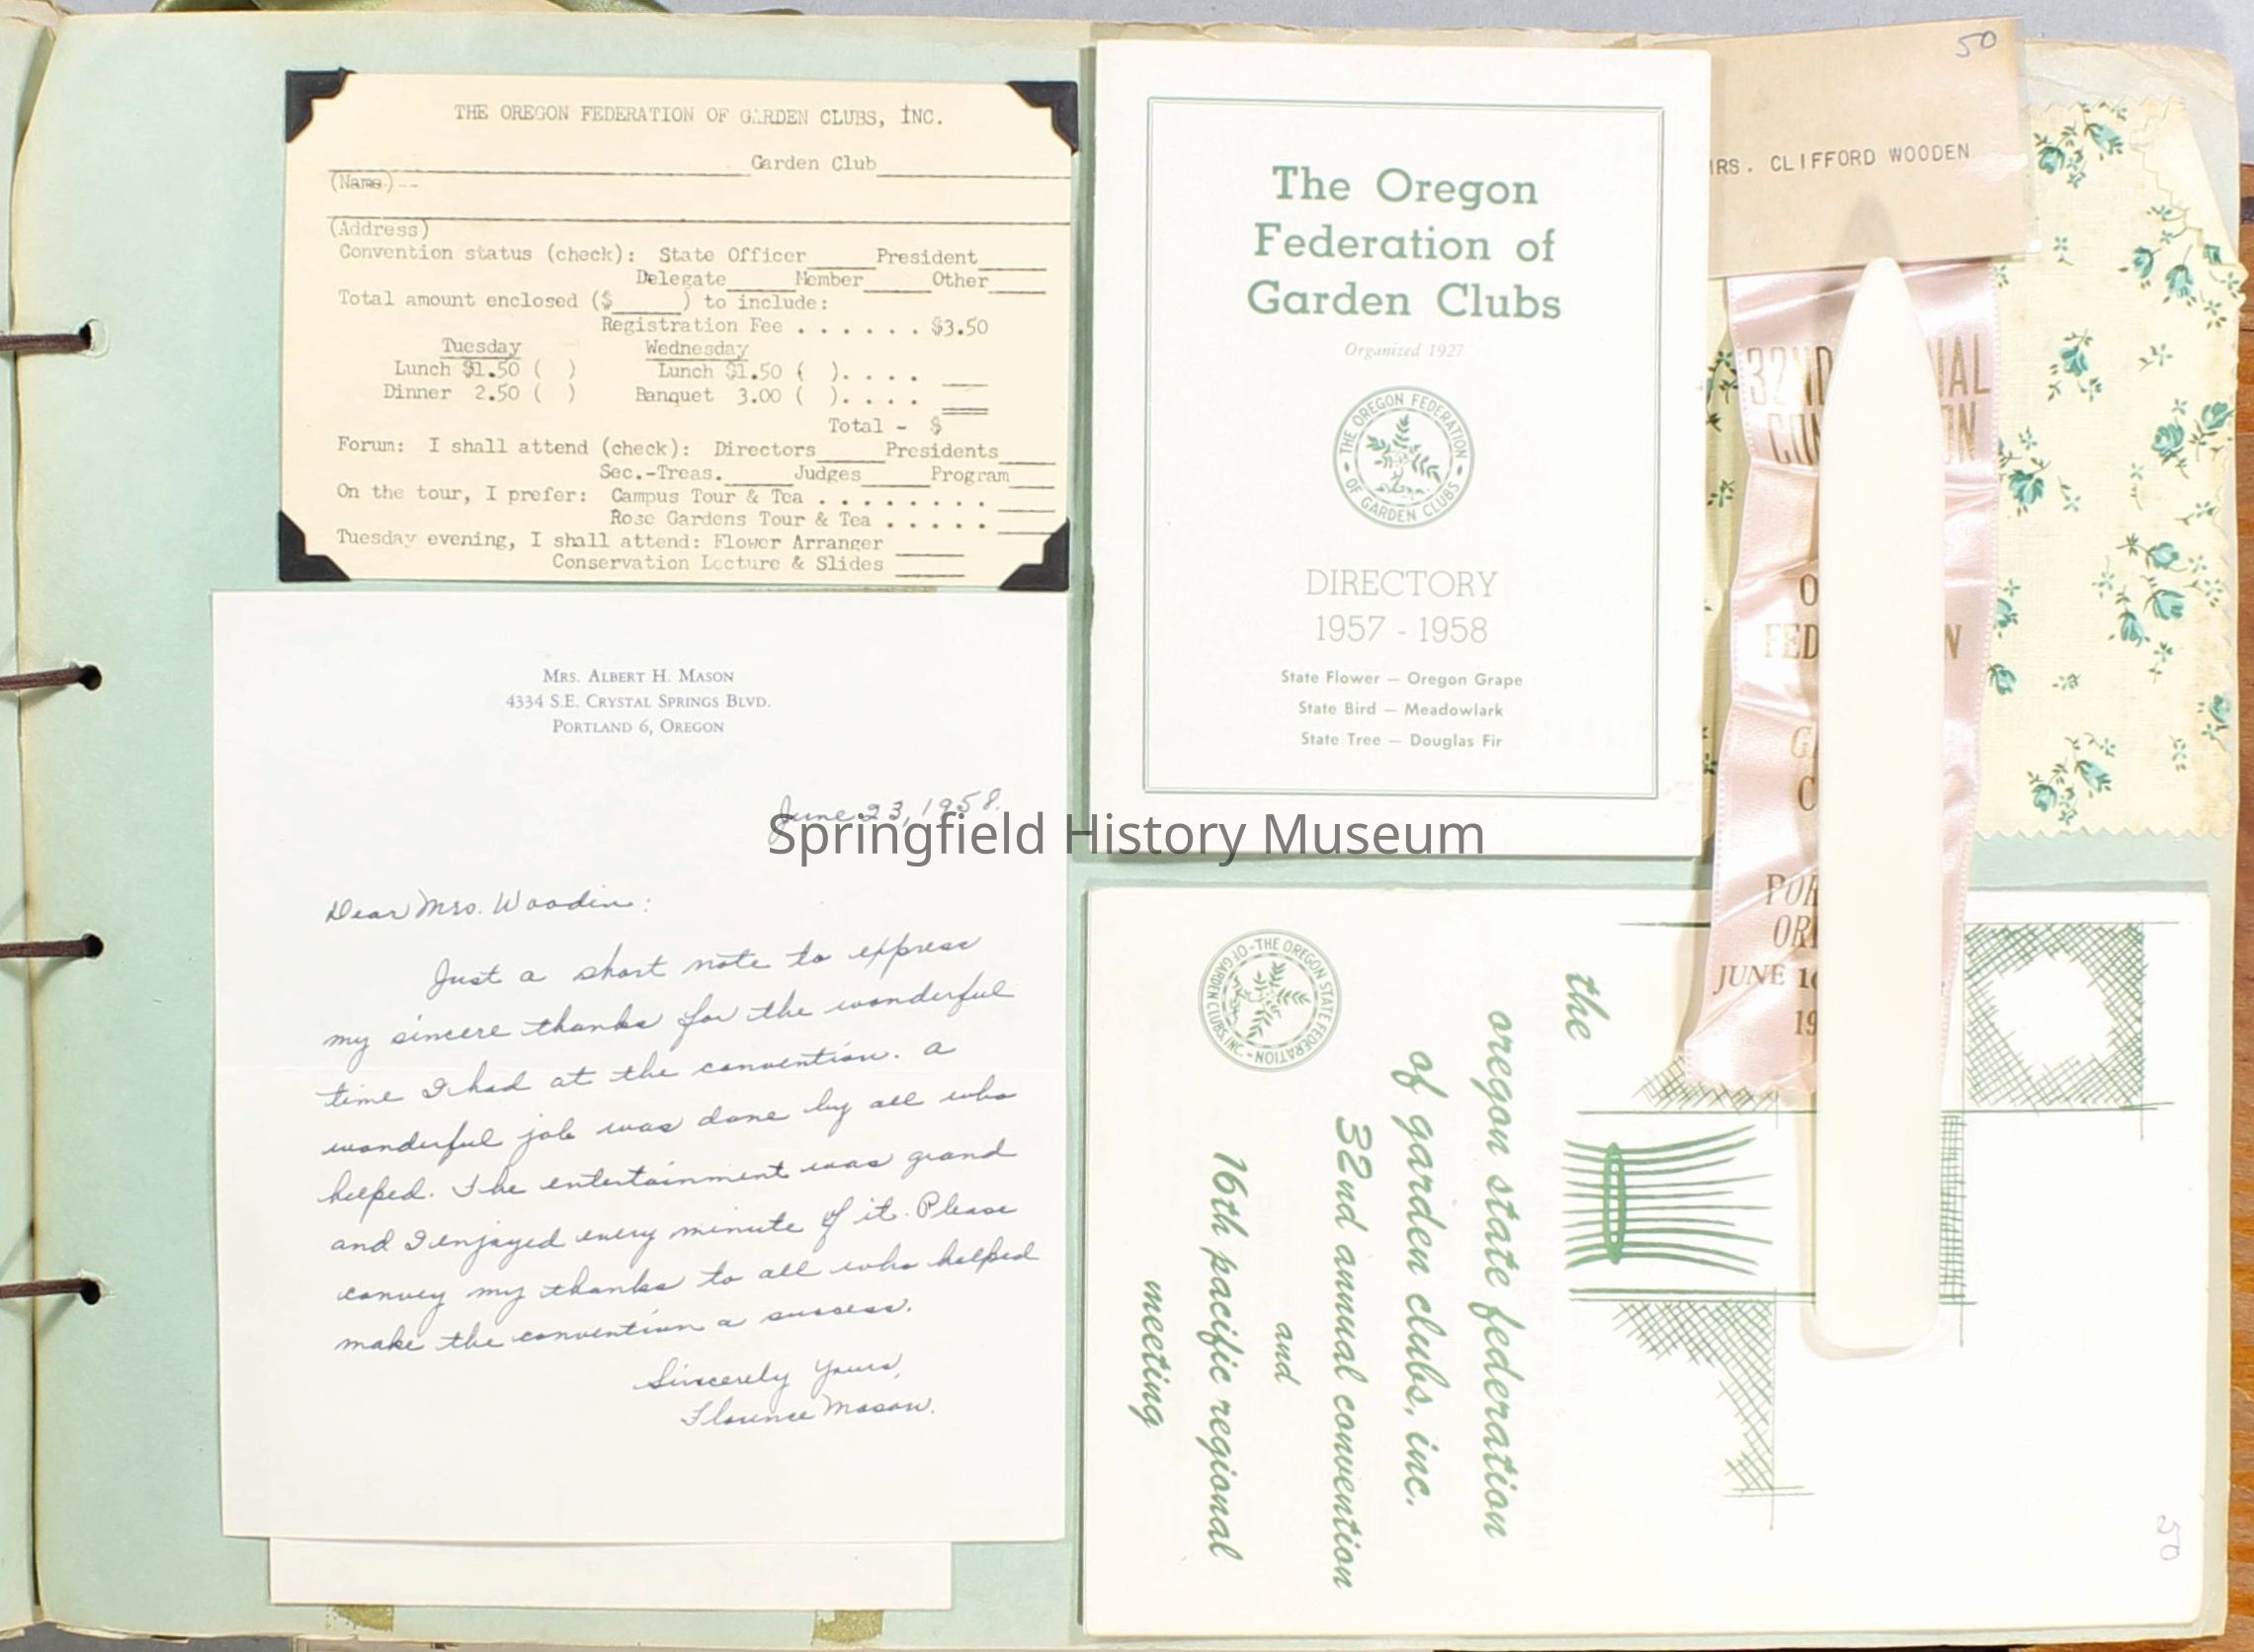 THE OREGON FEDERATION OF GARDEN CLUBS, INC.
Garden Club
(Name)--
(Address)
Convention status (check): State Officer President
Delegate Member Other
Total amount enclosed ($ ) to include:
Registration Fee . . . . . . $3.50
Tuesday Wednesday
Lunch $1.50 ( ) Lunch $1.50 ( ). . . .
Dinner 2.50 ( ) Banquet 3.00 ( ). . . .
Total - $
Forum: I shall attend (check): Directors Presidents
Sec.-Treas. Judges Program
On the tour, I prefer: Campus Tour & Tea . . . . . . . .
Rose Gardens Tour & Tea . . . . .
Tuesday evening, I shall attend: Flower Arranger
Conservation Lecture & Slides
MRS. ALBERT H. MASON
4334 S.E. CRYSTAL SPRINGS BLVD.
PORTLAND 6, OREGON
June 23, 1958.
Dear Mrs. Woodin:
Just a short note to express
my sincere thanks for the wonderful
time I had at the convention. A
wonderful job was done by all who
helped. The entertainment was grand
and I enjoyed every minute of it. Please
convey my thanks to all who helped
make the convention a success.
Sincerely Yours,
Florence Mason.
The Oregon
Federation of
Garden Clubs
Organized 1927
THE OREGON FEDERATION
OF GARDEN CLUBS
DIRECTORY
1957 - 1958
State Flower — Oregon Grape
State Bird — Meadowlark
State Tree — Douglas Fir
50
RS. CLIFFORD WOODEN
32ND IAL
CON ON
O
FED N
G
C
POR
OR
JUNE 1
19
THE OREGON STATE FEDERATION
OF GARDEN CLUBS, INC.
the
oregon state federation
of garden clubs, inc.
32nd annual convention
and
16th pacific regional
meeting
50
Springfield History Museum